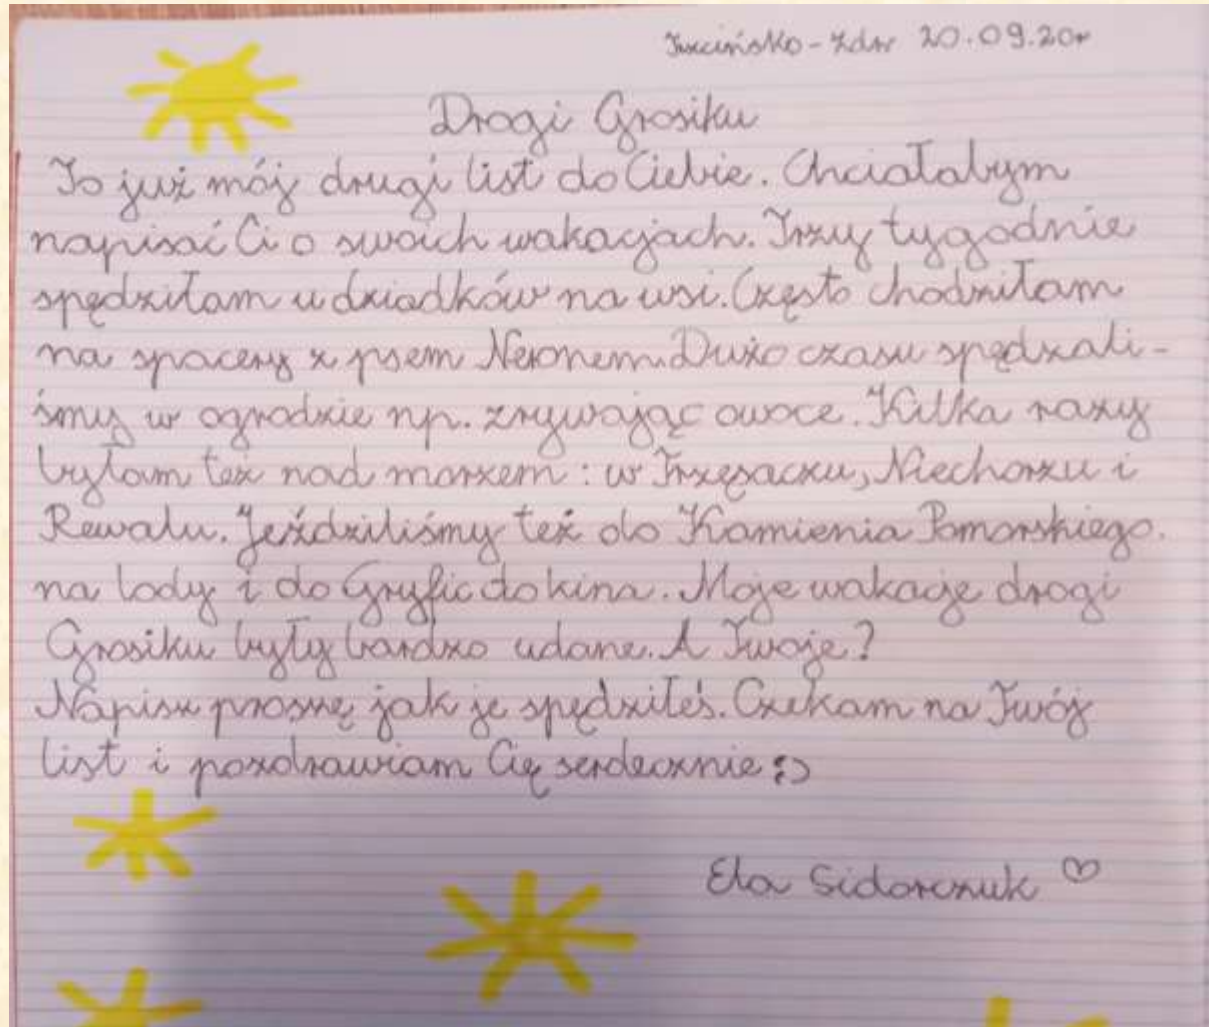 Trzcińsko-Zdr 20.09.20r
Drogi Grosiku
To już mój drugi list do Ciebie. Chciałabym
napisać Ci o swoich wakacjach. Trzy tygodnie
spędziłam u dziadków na wsi. Często chodziłam
na spacery z psem Neronem. Dużo czasu spędzali-
śmy w ogrodzie np. zrywając owoce. Kilka razy
byłam też nad morzem: w Trzęsaczu, Niechorzu i
Rewalu. Jeździliśmy też do Kamienia Pomorskiego.
na lody i do Gryfic do kina. Moje wakacje drogi
Grosiku były bardzo udane. A Twoje?
Napisz proszę jak je spędziłeś. Czekam na Twój
list i pozdrawiam Cię serdecznie :)
Ela Sidorczuk ♡